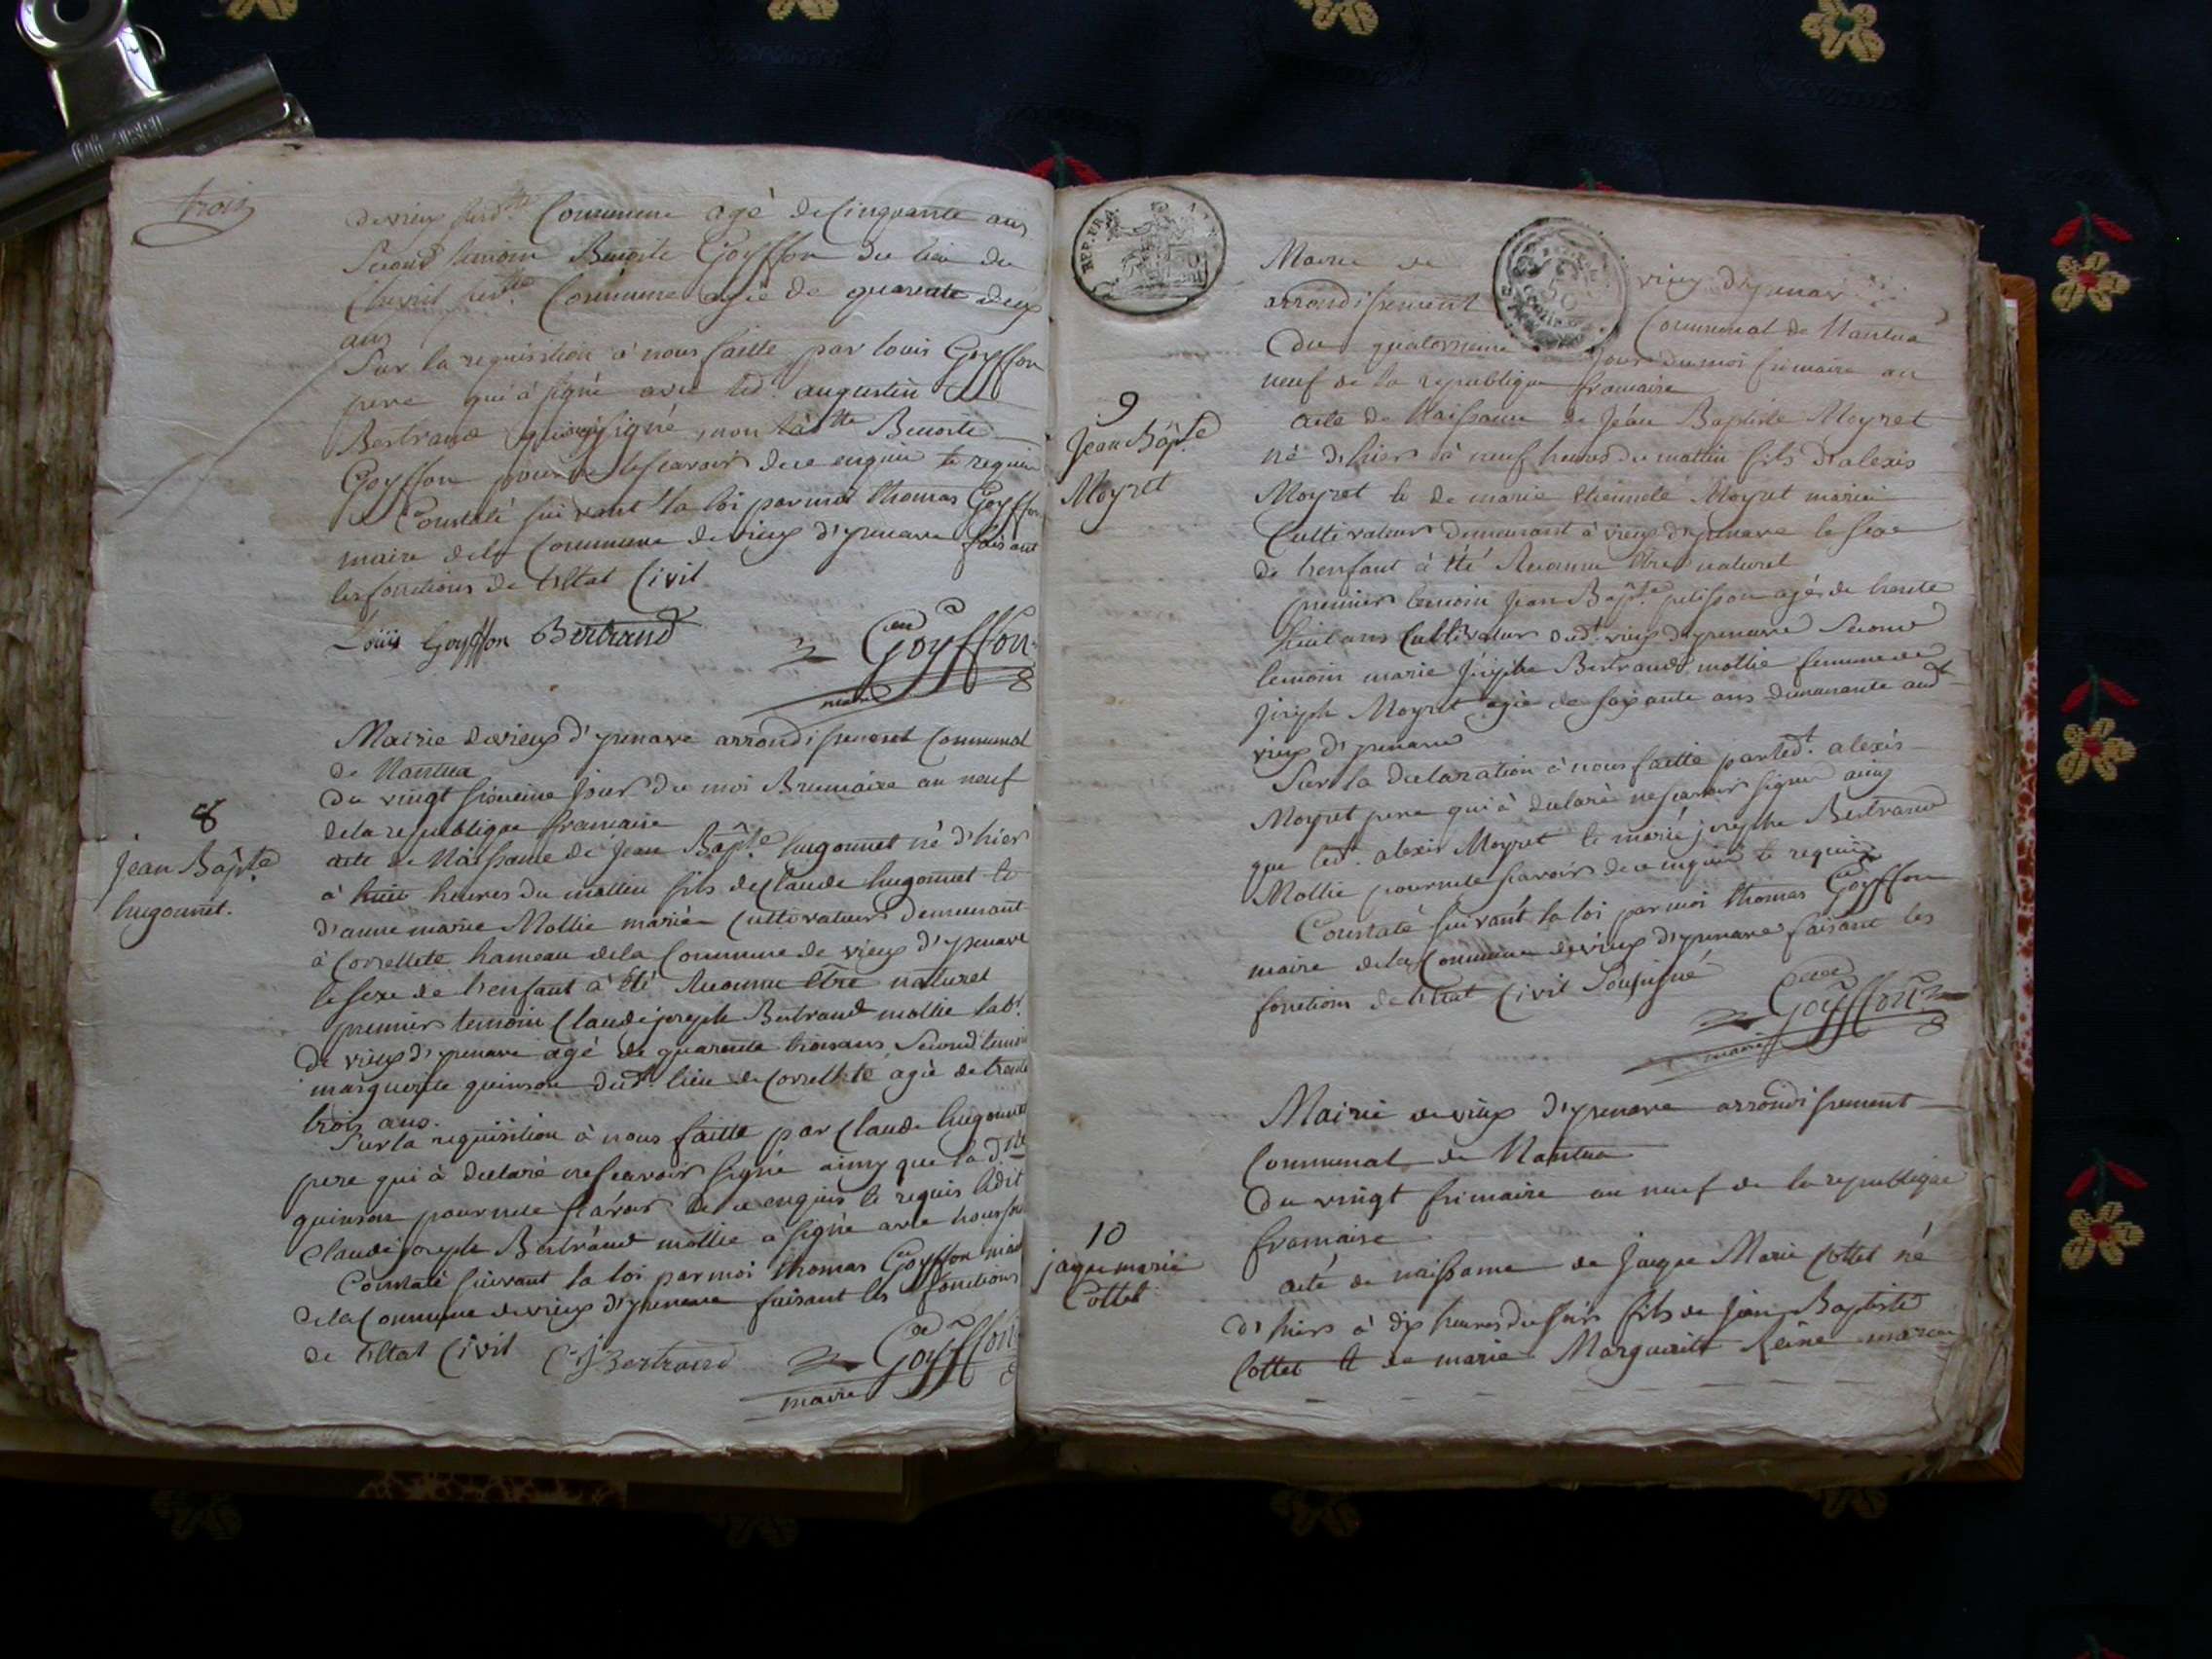 trois
de vieux susd.te Commune agé de Cinquante ans
Second temoin Benoite Goyffon du lieu de
Chevril susd.te Commune agée de quarente deux
ans
Sur la requisition à nous faitte par louis Goyffon
pere qui à signé avec led. augustin
Bertrand soussigné non la d.tte Benoite
Goyffon pour ne le scavoir de ce enquise et requise
Constaté suivant la loi par moi thomas Goyffon
maire de la Commune de vieux d'yzenave faisant
les fonctions de l'Etat Civil
Louis Goyffon Bertrand
Goyffon
maire
Mairie de vieux d'yzenave arrondissement Communal
de Nantua
du vingt sixieme jour du moi Brumaire an neuf
de la republique francaise
8
Jean Bapt.e
hugonnet.
acte de Naissance de Jean Bapt.e hugonnet né d'hier
à huit heures du mattin fils de Claude hugonnet et
d'anne marie Mollie mariés Cultivateurs demeurant
à Corcellete hameau de la Commune de vieux d'yzenave
le sexe de l'enfant à été Reconnu etre naturel
premier temoin Claude joseph Bertrand mollie lab.r
de vieux d'yzenave agé de quarente trois ans Second temoin
marguerite quinson dud.t lieu de Corcellete agée de trente
trois ans.
Sur la requisition à nous faitte par Claude hugonnet
pere qui à declaré ne scavoir signé ainsy que la d.tte
quinson pour ne le scavoir de ce enquis et requis ledit
Claude joseph Bertrand mollie a signé avec nous
Constaté suivant la loi par moi thomas Goyffon maire
de la Commune de vieux d'yzenave faisant les fonctions
de l'Etat Civil CJ Bertrand
Goyffon
maire
REP. FRA.
Mairie de vieux d'yzenave
arrondissement Communal de Nantua
du quatorzieme jour du moi frimaire an
neuf de la republique francaise
9
Jean Bapt.e
Moyret
acte de Naissance de Jean Baptiste Moyret
né d'hier à neuf heures du mattin fils d'alexis
Moyret et de marie Etiennete Moyret mariés
Cultivateurs demeurant à vieux d'yzenave le sexe
de l'enfant à été Reconnu etre naturel
premier temoin Jean Bapt.e pelisson agé de trente
huit ans Cultivateur dud.t vieux d'yzenave Second
temoin marie josephe Bertrand mollie femme de
joseph Moyret agée de soixante ans demeurante aud.t
vieux d'yzenave
Sur la declaration à nous faitte par led.t alexis
Moyret pere qui à declaré ne scavoir signer ainsy
que led.t alexis Moyret et marie josephe Bertrand
Mollie pour ne le scavoir de ce enquis et requis
Constaté suivant la loi par moi thomas Goyffon
maire de la Commune de vieux d'yzenave faisant les
fonctions de l'Etat Civil Soussigné
Goyffon
maire
Mairie de vieux d'yzenave arrondissement
Communal de Nantua
du vingt frimaire an neuf de la republique
francaise
10
jaque marie
Cottet
acte de naissance de Jaque Marie Cottet né
d'hier à dix heures du soir fils de Jean Baptiste
Cottet et de marie Marguerite Reine mariés